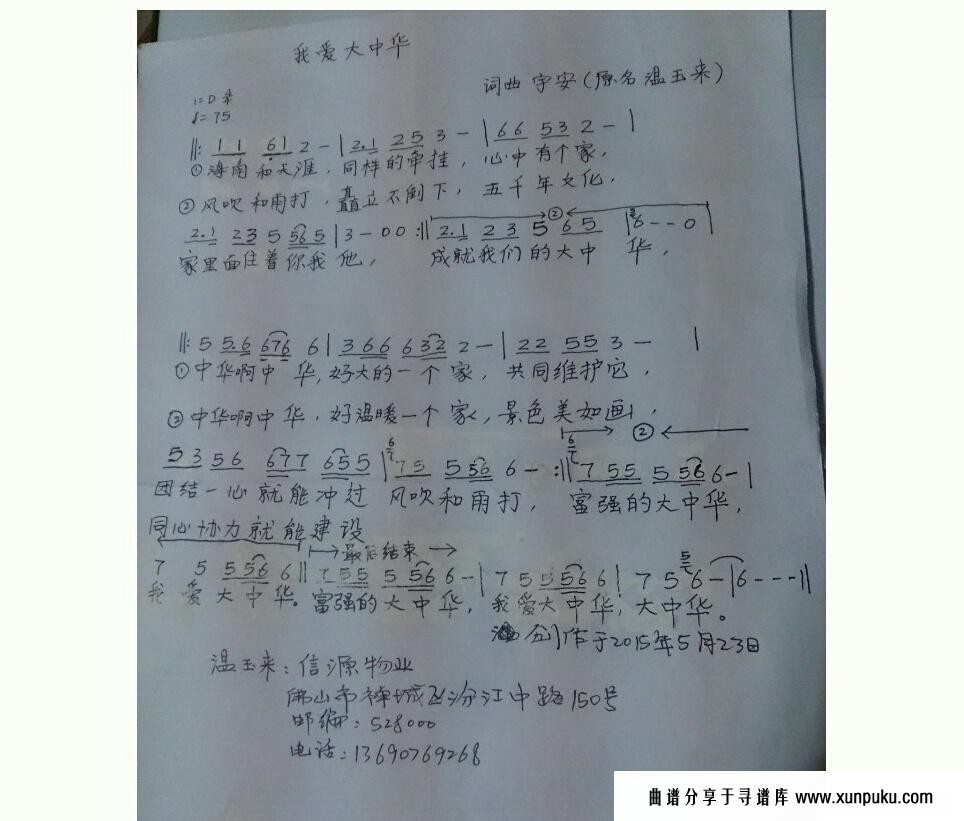 我爱大中华
词曲 宇安（原名温玉来）
1=D
♩=75
‖: 1 1 61 2 - | 2.1 25 3 - | 66 53 2 - |
①海南和天涯，同样的牵挂，心中有个家，
②风吹和雨打，矗立不倒下，五千年文化，
2.1 23 5 56 5 | 3 - 00 :‖ 2.1 23 5 65 | 6 - - 0 |
②
家里面住着你我他， 成就我们的大中华，
‖: 5 5.6 676 6 | 3 66 632 2 - | 22 55 3 - |
①中华啊中华，好大的一个家，共同维护它，
②中华啊中华，好温暖一个家，景色美如画，
②
53 56 677 655 | 75 556 6 - :‖ 7 55 5 56 6 - |
团结一心就能冲过 风吹和雨打， 富强的大中华，
同心协力就能建设
最后结束
7 5 5 56 6 ‖ 7 55 5 56 6 - | 7 5 5 56 6 | 7 5 6 - | 6 - - - ‖
我爱大中华。富强的大中华，我爱大中华，大中华。
创作于2015年5月23日
温玉来：信源物业
佛山市禅城区汾江中路150号
邮编：528000
电话：13690769268
曲谱分享于寻谱库 www.xunpuku.com